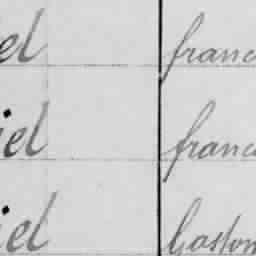 el franc
iel franc
iel Gaston